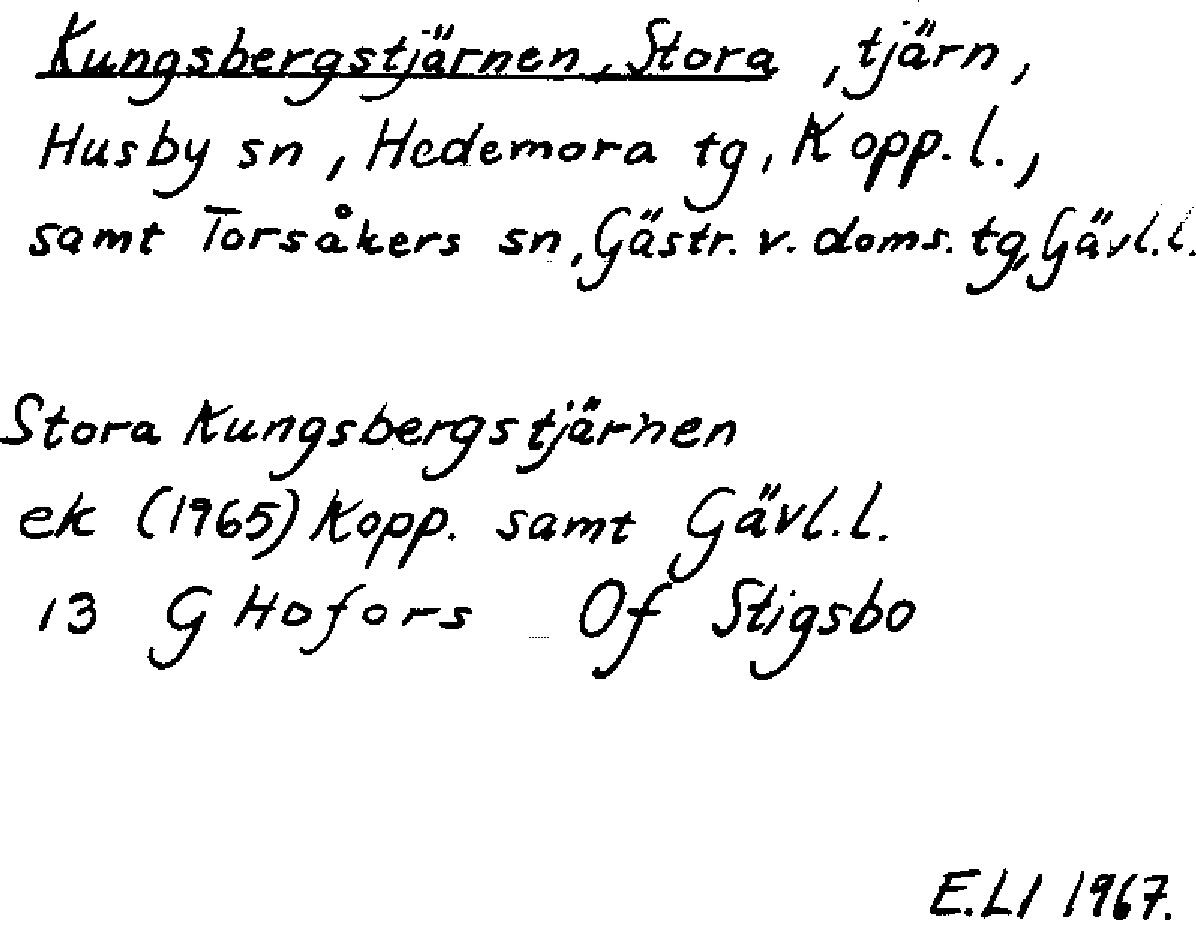 Kungsbergstjärnen, Stora, tjärn,
Husby sn, Hedemora tg, Kopp. l.,
samt Torsåkers sn, Gästr. v. doms. tg, Gävl. l.
Stora Kungsbergstjärnen
ek (1965) Kopp. samt Gävl. l.
13 G Hofors Of Stigsbo
E.LI 1967.